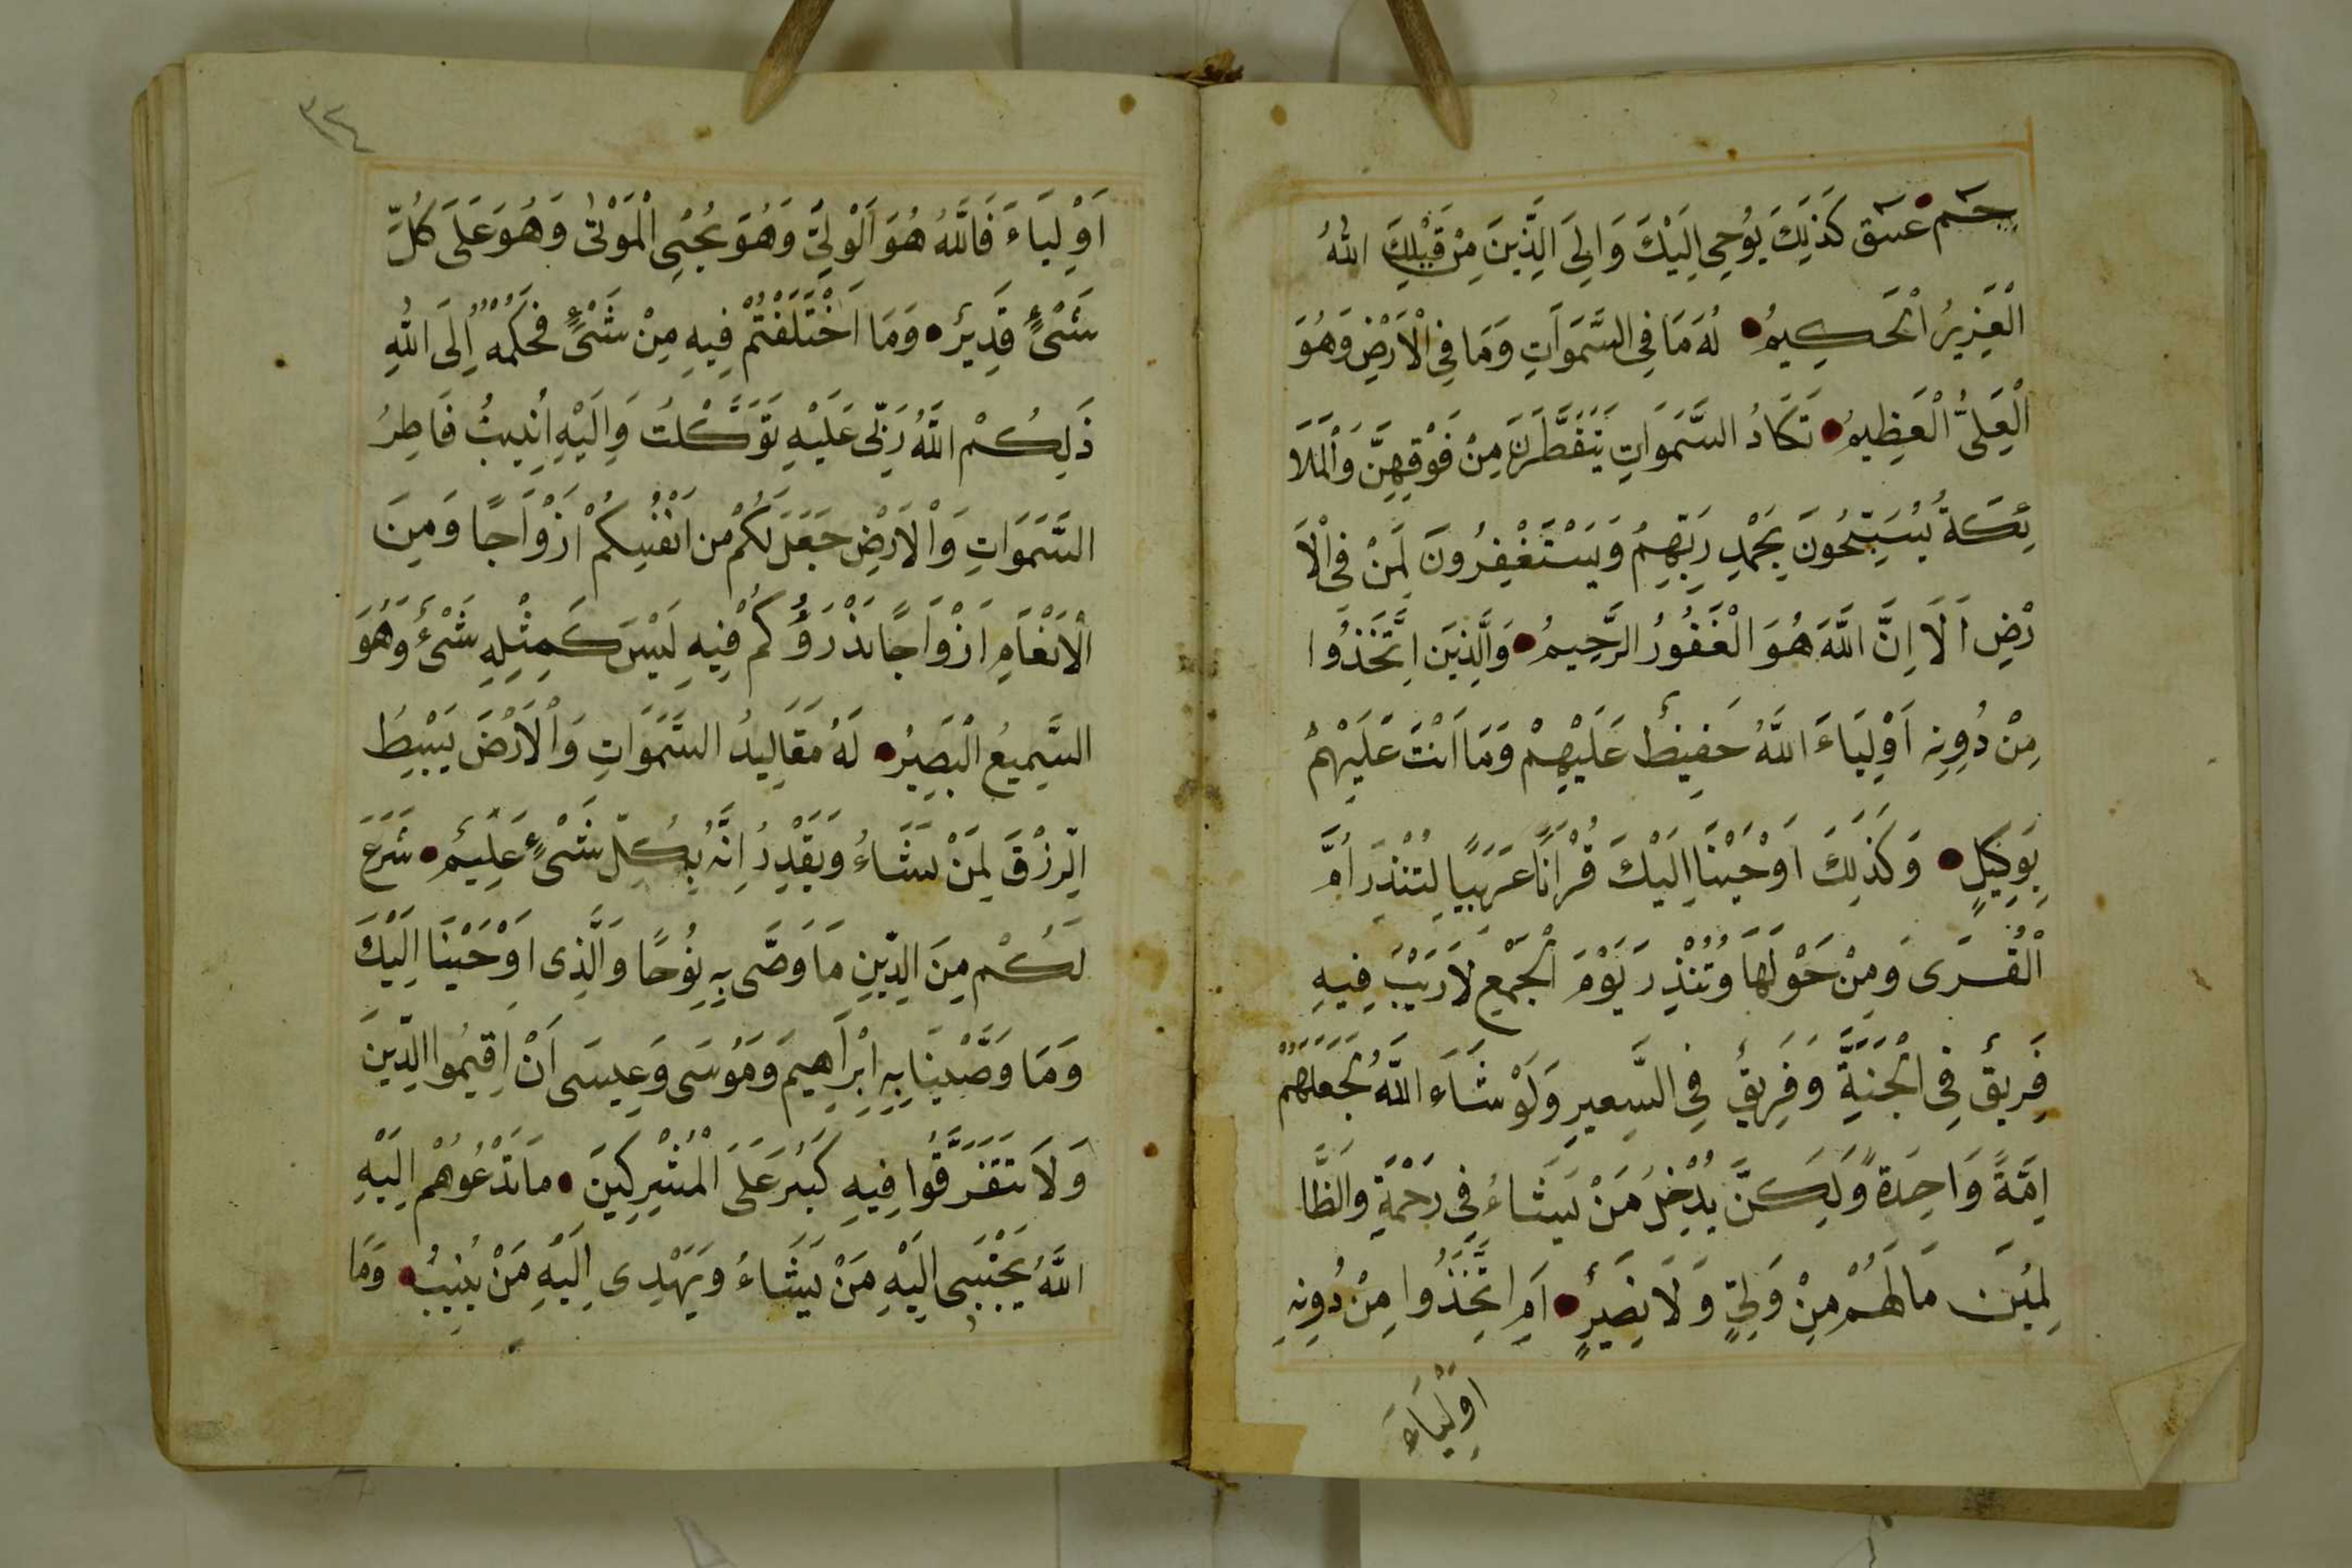 حم عسق كَذَلِكَ يُوحِي اِلَيْكَ وَاِلَى الَّذِينَ مِنْ قَبْلِكَ اللهُ
الْعَزِيزُ الْحَكِيمُ لَهُ مَا فِى السَّمَوَاتِ وَمَا فِى الْاَرْضِ وَهُوَ
الْعَلِىُّ الْعَظِيمُ تَكَادُ السَّمَوَاتِ يَتَفَطَّرْنَ مِنْ فَوْقِهِنَّ وَالْمَلَا
ئِكَةُ يُسَبِّحُونَ بِحَمْدِ رَبِّهِمْ وَيَسْتَغْفِرُونَ لِمَنْ فِى الْاَ
رْضِ اَلَا اِنَّ اللَّهَ هُوَ الْغَفُورُ الرَّحِيمُ وَالَّذِينَ اتَّخَذُوا
مِنْ دُونِهِ اَوْلِيَاءَ اللَّهُ حَفِيظٌ عَلَيْهِمْ وَمَا اَنْتَ عَلَيْهِمْ
بِوَكِيلٍ وَكَذَلِكَ اَوْحَيْنَا اِلَيْكَ قُرْاَنًا عَرَبِيًا لِتُنْذِرَ اُمَّ
الْقُرَى وَمِنْ حَوْلَهَا وَتُنْذِرَ يَوْمَ الْجَمْعِ لَا رَيْبَ فِيهِ
فَرِيقٌ فِى الْجَنَّةِ وَفَرِيقٌ فِى السَّعِيرِ وَلَوْ شَاءَ اللَّهُ لَجَعَلَهُمْ
اُمَّةً وَاحِدَةً وَلَكِنَّ يُدْخِلُ مَنْ يَشَاءُ فِى رَحْمَةِ وَالظَّا
لِمِينَ مَا لَهُمْ مِنْ وَلِيٍّ وَلَا نَصِيرٍ اَمِ اتَّخَذُوا مِنْ دُونِهِ
اَوْلِيَاءَ
٣٢٤
اَوْلِيَاءَ فَاللَّهُ هُوَ الْوَلِيُّ وَهُوَ يُحْيِى الْمَوْتٰى وَهُوَ عَلَى كُلِّ
شَىْءٍ قَدِيرٌ وَمَا اَخْتَلَفْتُمْ فِيهِ مِنْ شَىْءٍ فَحُكْمُهُ اِلَى اللهِ
ذَلِكُمْ اللَّهُ رَبِّى عَلَيْهِ تَوَكَّلْتُ وَاِلَيْهِ اُنِيبُ فَاطِرُ
السَّمَوَاتِ وَالْاَرْضِ جَعَلَ لَكُمْ من اَنْفُسِكُمْ اَزْوَاجًا وَمِنَ
الْاَنْعَامِ اَزْوَاجًا يَذْرَؤُكُمْ فِيهِ لَيْسَ كَمِثْلِهِ شَىْءٌ وَهُوَ
السَّمِيعُ الْبَصِيرُ لَهُ مَقَالِيدُ السَّمَوَاتِ وَالْاَرْضَ يَبْسِطُ
الرِّزْقَ لِمَنْ يَشَاءُ وَيَقْدِرُ اِنَّهُ بِكُلِّ شَىْءٍ عَلِيمٌ شَرَعَ
لَكُمْ مِنَ الدِّينِ مَا وَصَّى بِهِ نُوحًا وَالَّذِى اَوْحَيْنَا اِلَيْكَ
وَمَا وَصَّيْنَا بِهِ اِبْرَاهِيمَ وَمُوسَى وَعِيسَى اَنْ اَقِيمُوا الدِّينَ
وَلَا تَتَفَرَّقُوا فِيهِ كَبُرَ عَلَى الْمُشْرِكِينَ مَا تَدْعُوهُمْ اِلَيْهِ
اللَّهُ يَجْتَبِى اِلَيْهِ مَنْ يَشَاءُ وَيَهْدِى اِلَيْهِ مَنْ يُنِيبُ وَمَا